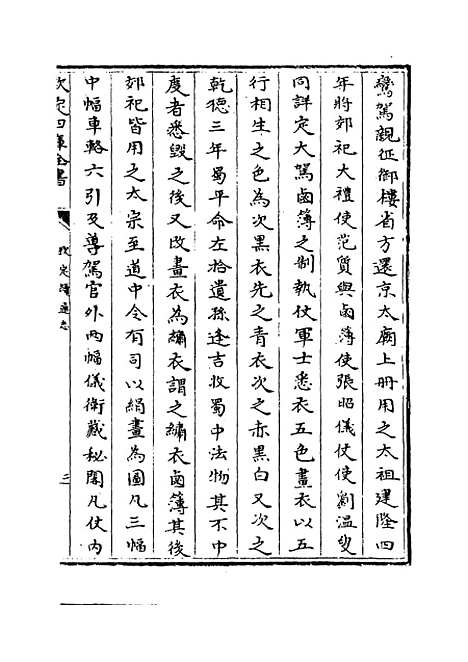 鸞駕親征御樓省方還京太廟上册用之太祖建隆四
年將郊祀大禮使范質與鹵簿使張昭儀仗使劉温叟
同詳定大駕鹵簿之制執仗軍士悉衣五色畫衣以五
行相生之色為次黑衣先之青衣次之赤黑白又次之
乾徳三年蜀平命左拾遺孫逢吉收蜀中法物其不中
度者悉毁之後又改畫衣為繡衣謂之繡衣鹵簿其後
郊祀皆用之太宗至道中令有司以絹畫為圖凡三幅
中幅車輅六引及導駕官外兩幅儀衛藏秘閣凡仗内
欽定四庫全書
欽定續通志
三